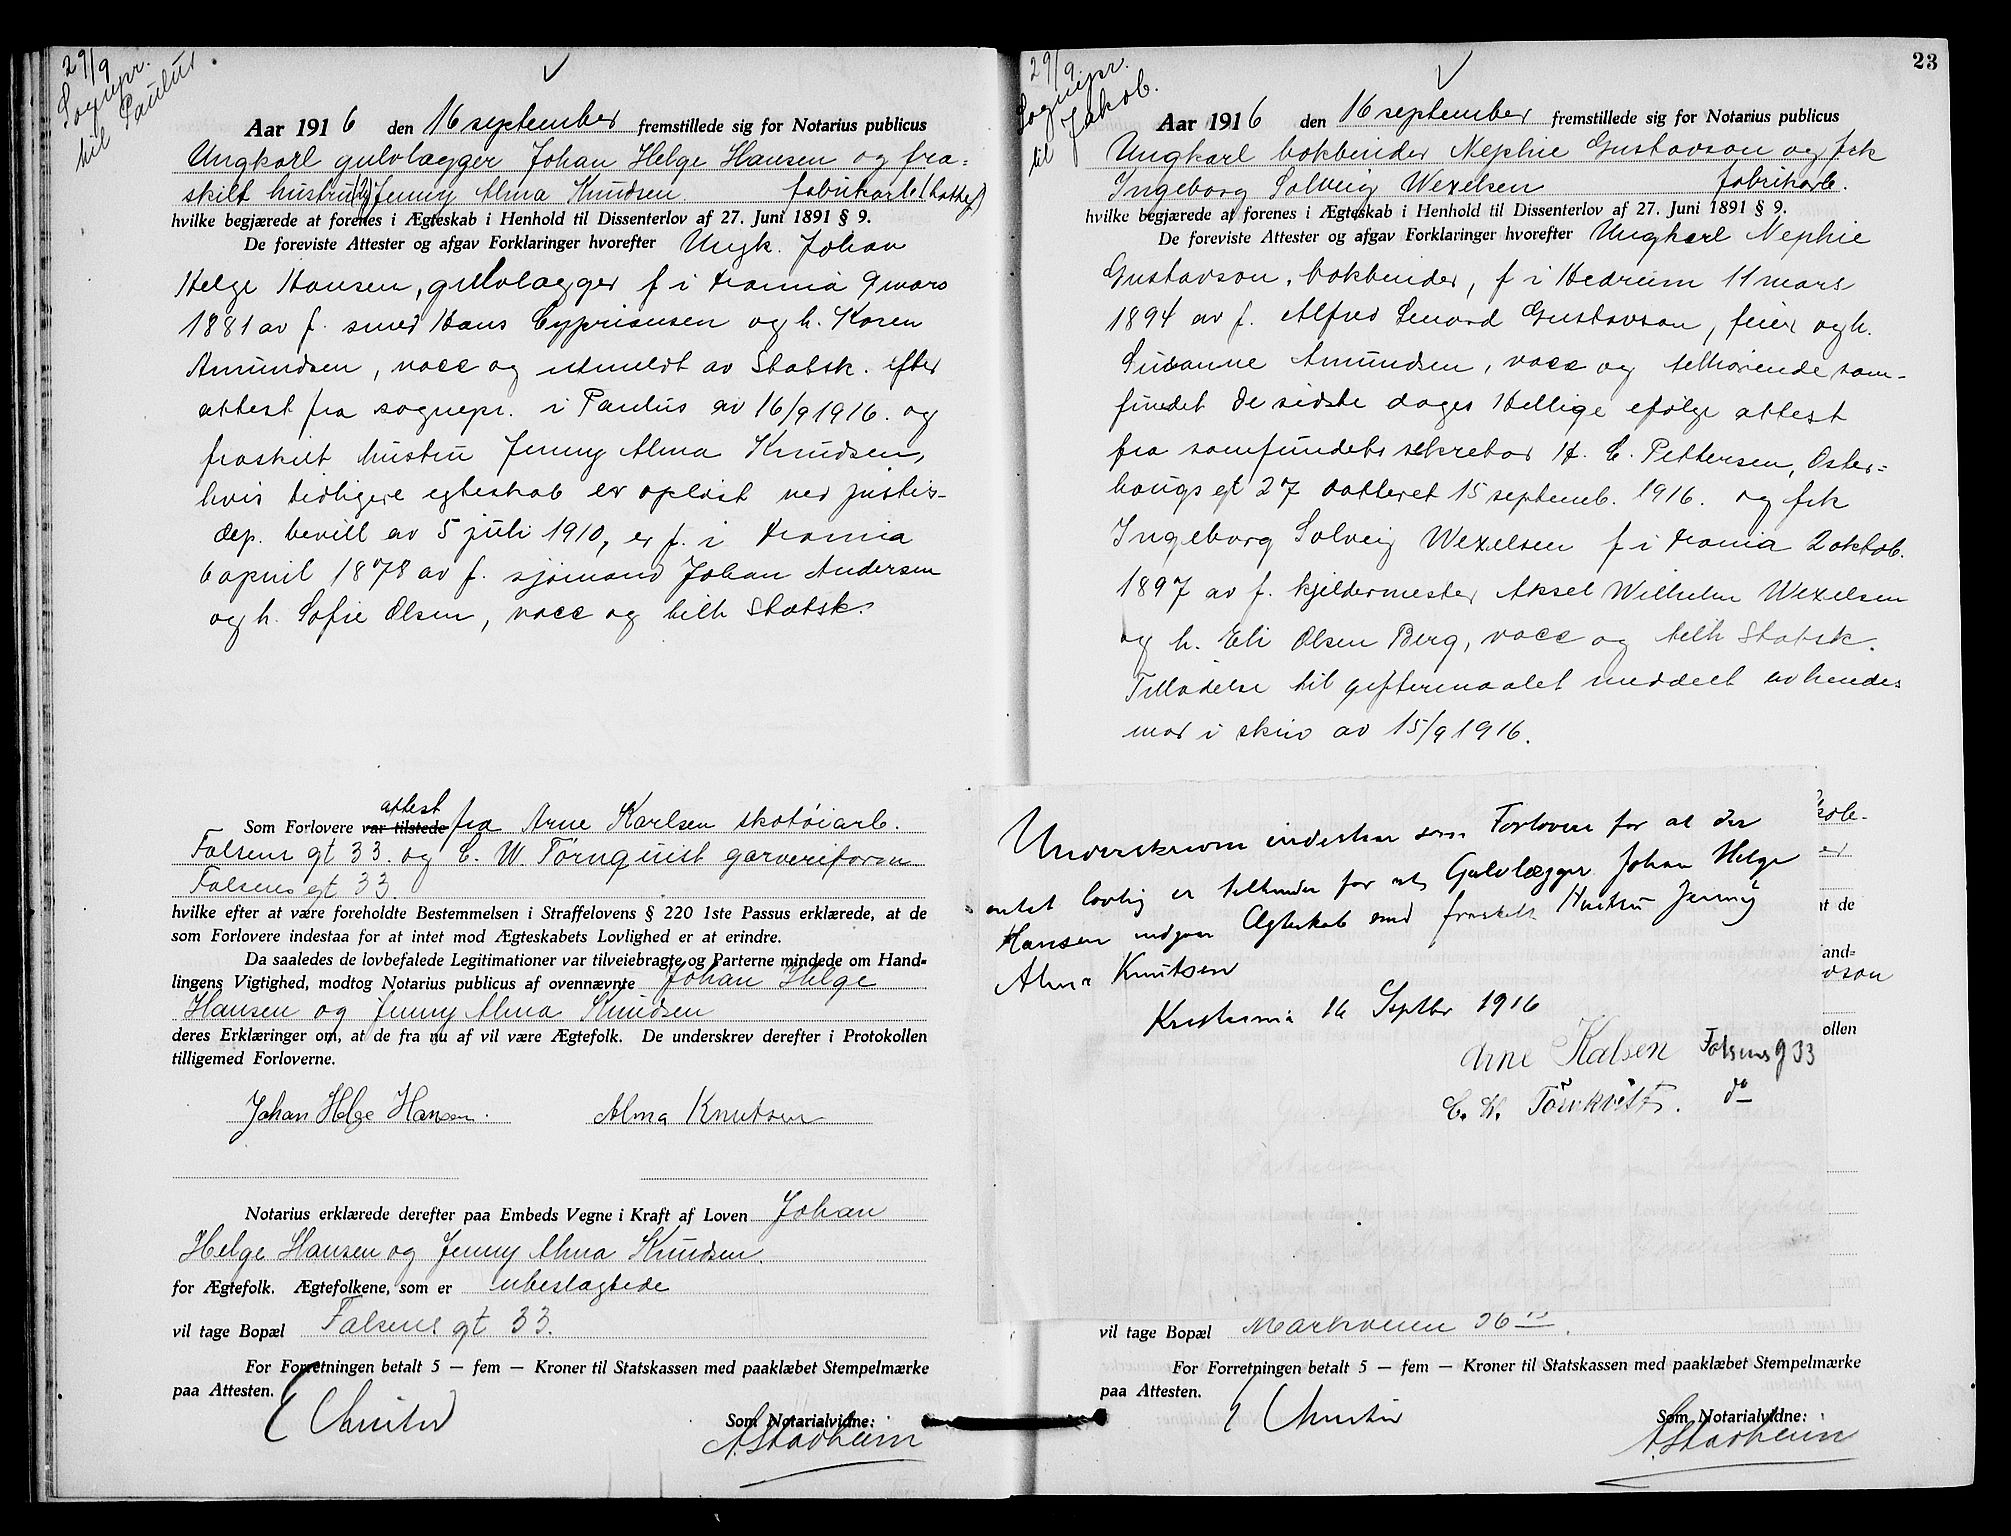 29/9
Sognepr.
til Paulus
Aar 1916 den 16 september fremstillede sig for Notarius publicus
Ungkarl gulvlægger Johan Helge Hansen og fra-
skilt hustru (2) Jenny Alma Knudsen fabrikarb.
hvilke begjærede at forenes i Ægteskab i Henhold til Dissenterlov af 27. Juni 1891 § 9.
De foreviste Attester og afgav Forklaringer hvorefter Ungk. Johan
Helge Hansen, gulvlægger f i krania 9 mars
1881 av f. smed Hans Cypriansen og h. Karen
Amundsen, vacc og utmeldt av Statsk. efter
attest fra sognepr. i Paulus av 16/9 1916. og
fraskilt hustru Jenny Alma Knudsen,
hvis tidligere egteskab er opløst ved justis-
dep. bevill av 5 juli 1910, er f. i krania
6 april 1878 av f. sjömand Johan Andersen
og h. Sofie Olsen, vacc og tilh Statsk.
Som Forlovere var tilstede attest fra Arne Karlsen skotöiarb.
Falsens gt 33. og C. W. Törnquist garveriform
Falsens gt 33
hvilke efter at være foreholdte Bestemmelsen i Straffelovens § 220 1ste Passus erklærede, at de
som Forlovere indestaa for at intet mod Ægteskabets Lovlighed er at erindre.
Da saaledes de lovbefalede Legitimationer var tilveiebragte og Parterne mindede om Hand-
lingens Vigtighed, modtog Notarius publicus af ovennævnte Johan Helge
Hansen og Jenny Alma Knudsen
deres Erklæringer om, at de fra nu af vil være Ægtefolk. De underskrev derefter i Protokollen
tilligemed Forloverne.
Johan Helge Hansen. Alma Knutsen
Notarius erklærede derefter paa Embeds Vegne i Kraft af Loven Johan
Helge Hansen og Jenny Alma Knudsen.
for Ægtefolk. Ægtefolkene, som er ubeslagtede
vil tage Bopæl Falsens gt 33.
For Forretningen betalt 5 — fem — Kroner til Statskassen med paaklæbet Stempelmærke
paa Attesten.
Som Notarialvidne:
A. Stadheim
23
29/9.
Sognepr.
til Jakob.
Aar 1916 den 16 september fremstillede sig for Notarius publicus
Ungkarl bokbinder Nephie Gustavson og frk
Ingeborg Solveig Wexelsen fabrikarb.
hvilke begjærede at forenes i Ægteskab i Henhold til Dissenterlov af 27. Juni 1891 § 9.
De foreviste Attester og afgav Forklaringer hvorefter Ungkarl Nephie
Gustavson, bokbinder, f i Hedrum 11 mars
1894 av f. Alfred Lenard Gustavson, feier og h.
Susanne Amundsen, vacc og tilhörende sam-
fundet de sidste dages Hellige efölge attest
fra samfundets sekretær H. C. Pettersen, Oster-
haugs gt 27 datteret 15 septemb. 1916. og frk
Ingeborg Solveig Wexelsen f i krania 2 oktob.
1897 av f. kjeldermester Aksel Wilhelm Wexelsen
og h. Eli Olsen Berg, vacc og tilh Statsk.
Tilladelse til giftermaalet meddelt av hendes
mor i skriv av 15/9 1916.
Underskrevne indestaar som Forlovere for at der
intet lovlig er til hinder for at Gulvlægger Johan Helge
Hansen indgaar Ægteskab med fraskilt Hustru Jenny
Alma Knutsen
Kristiania 16 Septbr 1916
Arne Kalsen Falsens g 33
C. W. Törnkvist. do
and-
ollen
vil tage Bopæl Markveien 26
For Forretningen betalt 5 — fem — Kroner til Statskassen med paaklæbet Stempelmærke
paa Attesten.
Som Notarialvidne:
A. Stadheim